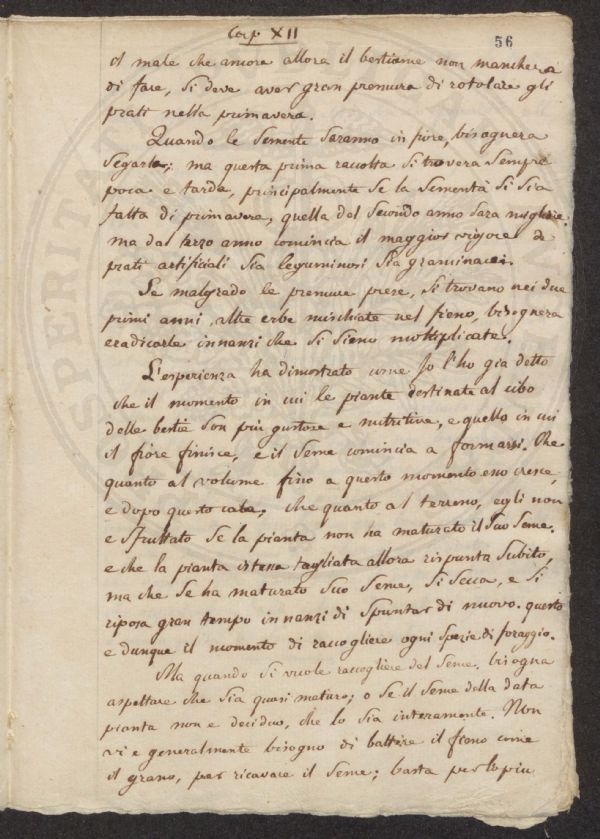 Cap XII
56
il male che ancora allora il bestiame non mancherà
di fare, si deve aver gran premura di rotolare gli
prati nella primavera.
Quando le semente saranno in fiore, bisognera
segarle; ma questa prima raccolta si trovera sempre
poca e tarda, principalmente se la sementa si sia
fatta di primavera, quella del secondo anno sara migliore.
ma dal terzo anno comincia il maggior vigore di
prati artificiali sia leguminosi sia graminacei.
Se malgrado le premure prese, si trovano nei due
primi anni, altre erbe mischiate nel fieno, bisognera
eradicarle innanzi che si sieno moltiplicate.
L'esperienza ha dimostrato come Io l'ho gia detto
che il momento in cui le piante destinate al cibo
delle bestie son più gustose e nutritive, e quello in cui
il fiore finisce, e il seme comincia a formarsi. Che
quanto al volume fino a questo momento esso cresce,
e dopo questo cala; che quanto al terreno, egli non
e sfruttato se la pianta non ha maturato il suo seme.
e che la pianta istessa tagliata allora rispunta subito,
ma che se ha maturato suo seme, si secca, e si
riposa gran tempo innanzi di spuntar di nuovo. questo
e dunque il momento di raccogliere ogni spezie di foraggio.
Ma quando si vuole raccogliere del seme, bisogna
aspettare che sia quasi maturo; o se il seme della data
pianta non e deciduo, che lo sia interamente. Non
vi e generalmente bisogno di battere il fieno come
il grano, per ricavare il seme; basta per lo più